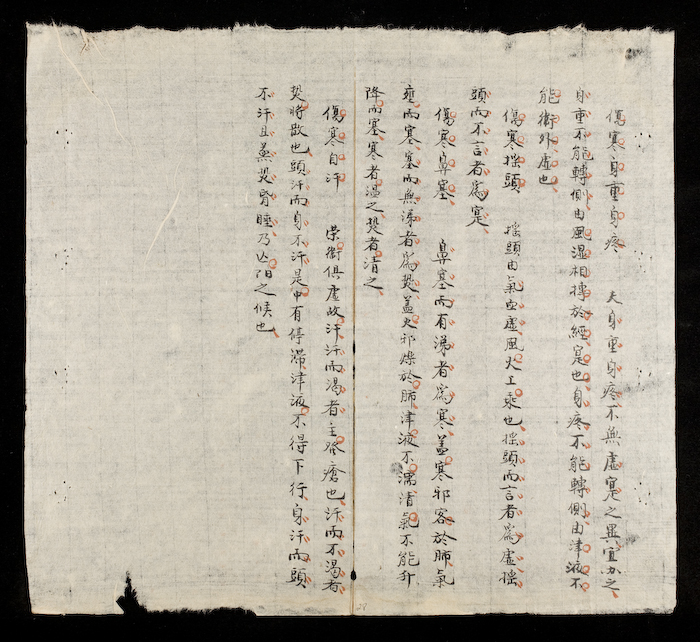 傷寒身重身疼　夫身重身疼不無虛寔之異宜办之
身重不能轉側由風湿相摶於經寔也身疼不能轉側由津液不
能衛外虛也
傷寒揺頭　揺頭由氣血虛風火上乘也揺頭而言者為虛揺
頭而不言者為寔
傷寒鼻塞　鼻塞而有涕者為寒盖寒邪客於肺氣
壅而塞塞而無涕者為𤍠盖火邪燥於肺津液不濡清氣不能升
降而塞寒者温之𤍠者清之
傷寒自汗　栄衛俱虛故汗汗而渴者主發瘡也汗而不渴者
𤍠將歇也頭汗而身不汗是中有停滯津液不得下行身汗而頭
不汗且無𤍠昏睡乃亾阳之候也